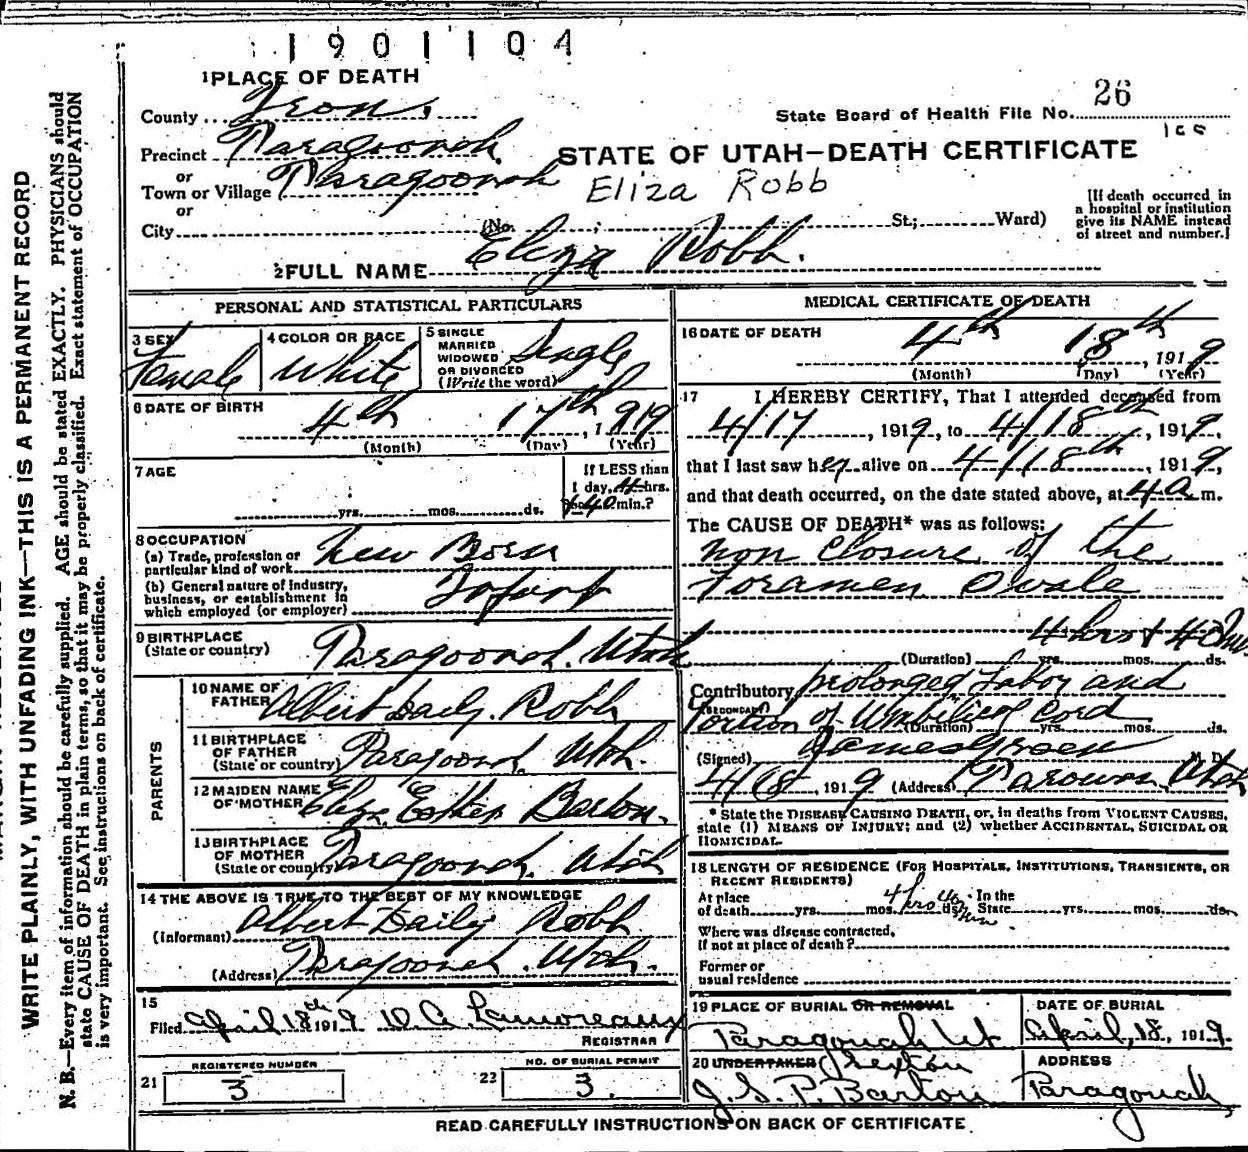 1901104
1 PLACE OF DEATH
County Iron.
26
State Board of Health File No.
Precinct Paragoonah
STATE OF UTAH—DEATH CERTIFICATE
or
Town or Village Paragoonah
Eliza Robb
or
City (No. ; St; Ward)
[If death occurred in
a hospital or institution
give its NAME instead
of street and number.]
2 FULL NAME Eliza Robb.
PERSONAL AND STATISTICAL PARTICULARS
3 SEX
Female
4 COLOR OR RACE
White
5 SINGLE
MARRIED
WIDOWED
OR DIVORCED
(Write the word)
Single
6 DATE OF BIRTH
4th 17th, 1919
(Month) (Day) (Year)
7 AGE
yrs. mos. ds.
If LESS than
1 day, 4 hrs.
40 min.?
8 OCCUPATION
(a) Trade, profession or
particular kind of work New Born
(b) General nature of industry,
business, or establishment in
which employed (or employer) Infant
9 BIRTHPLACE
(State or country) Paragoonah. Utah
PARENTS
10 NAME OF
FATHER Albert Daily Robb
11 BIRTHPLACE
OF FATHER
(State or country) Paragoonah. Utah.
12 MAIDEN NAME
OF MOTHER Eliza Esther Barton.
13 BIRTHPLACE
OF MOTHER
(State or country) Paragoonah, Utah
14 THE ABOVE IS TRUE TO THE BEST OF MY KNOWLEDGE
(Informant) Albert Daily Robb
(Address) Paragoonah. Utah.
15
Filed April 18th 1919 D A Lamoreaux
REGISTRAR
REGISTERED NUMBER
21 3
NO. OF BURIAL PERMIT
22 3.
MEDICAL CERTIFICATE OF DEATH
16 DATE OF DEATH
4th 18th, 1919
(Month) (Day) (Year)
17 I HEREBY CERTIFY, That I attended deceased from
4/17, 1919, to 4/18th, 1919,
that I last saw her alive on 4/18th, 1919,
and that death occurred, on the date stated above, at 4 a m.
The CAUSE OF DEATH* was as follows:
non closure of the
Foramen Ovale
4 hrs + 40 min
(Duration) yrs. mos. ds.
Contributory prolonged Labor and
(SECONDARY)
Tortion of Umbilical Cord
(Duration) yrs. mos. ds.
(Signed) James Green M. D.
4/18, 1919 (Address) Parowan Utah
* State the DISEASE CAUSING DEATH, or, in deaths from VIOLENT CAUSES,
state (1) MEANS OF INJURY; and (2) whether ACCIDENTAL, SUICIDAL OR
HOMICIDAL.
18 LENGTH OF RESIDENCE (FOR HOSPITALS, INSTITUTIONS, TRANSIENTS, OR
RECENT RESIDENTS)
At place
of death yrs. mos. ds. In the
State yrs. mos. ds.
Where was disease contracted,
if not at place of death?
Former or
usual residence
19 PLACE OF BURIAL OR REMOVAL
Paragonah Ut
DATE OF BURIAL
April, 18, 1919.
20 UNDERTAKER Sexton
J. S. P. Barton
ADDRESS
Paragonah
READ CAREFULLY INSTRUCTIONS ON BACK OF CERTIFICATE
WRITE PLAINLY, WITH UNFADING INK—THIS IS A PERMANENT RECORD
N. B.—Every item of information should be carefully supplied. AGE should be stated EXACTLY. PHYSICIANS should
state CAUSE OF DEATH in plain terms, so that it may be properly classified. Exact statement of OCCUPATION
is very important. See instructions on back of certificate.